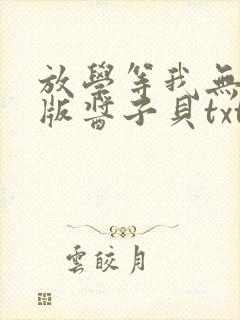 放學等我無
版醬子貝txt
雲皎月